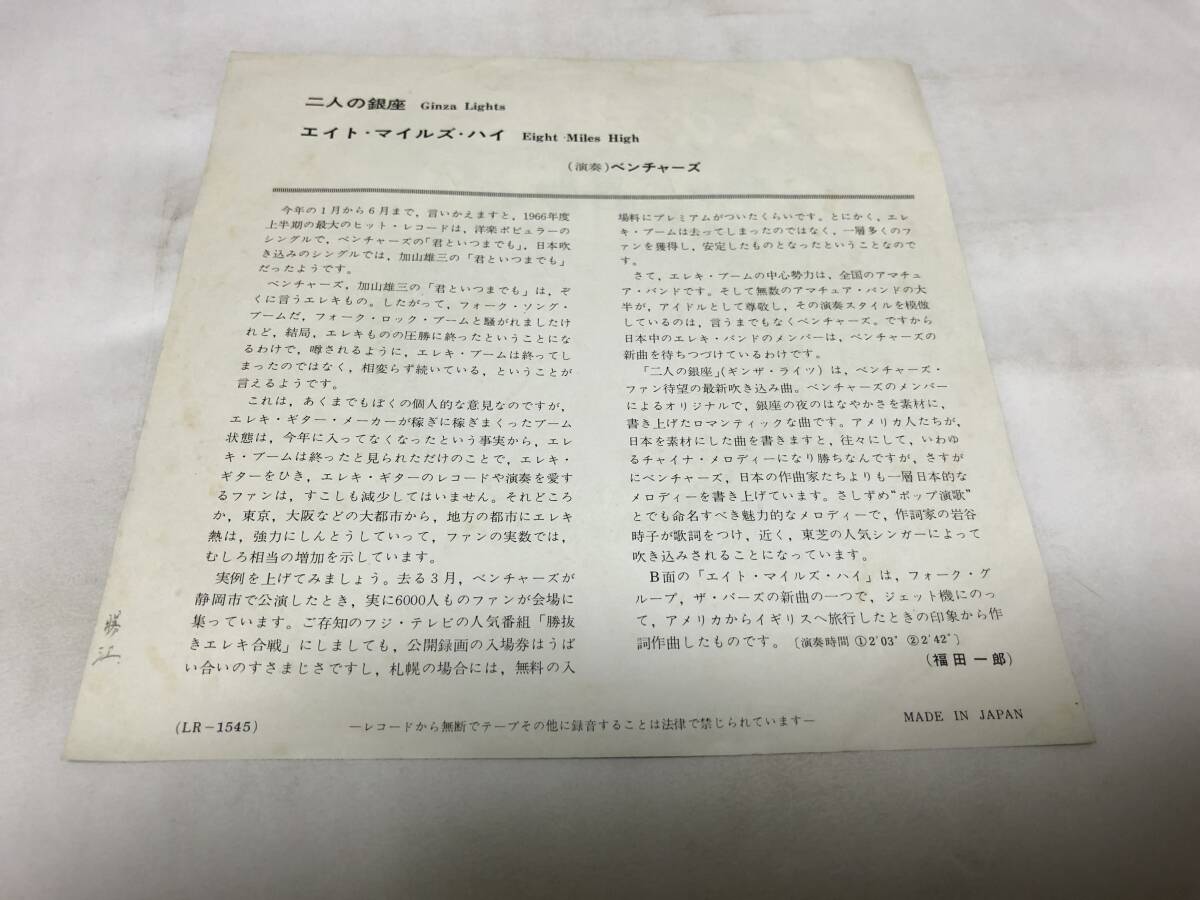 二人の銀座 Ginza Lights
エイト・マイルズ・ハイ Eight Miles High
(演奏)ベンチャーズ
今年の1月から6月まで，言いかえますと，1966年度
上半期の最大のヒット・レコードは，洋楽ポピュラーの
シングルで，ベンチャーズの「君といつまでも」，日本吹
き込みのシングルでは，加山雄三の「君といつまでも」
だったようです。
ベンチャーズ，加山雄三の「君といつまでも」は，ぞ
くに言うエレキもの。したがって，フォーク・ソング・
ブームだ，フォーク・ロック・ブームと騒がれましたけ
れど，結局，エレキものの圧勝に終ったということにな
るわけで，噂されるように，エレキ・ブームは終ってし
まったのではなく，相変らず続いている，ということが
言えるようです。
これは，あくまでもぼくの個人的な意見なのですが，
エレキ・ギター・メーカーが稼ぎに稼ぎまくったブーム
状態は，今年に入ってなくなったという事実から，エレ
キ・ブームは終ったと見られただけのことで，エレキ・
ギターをひき，エレキ・ギターのレコードや演奏を愛す
るファンは，すこしも減少してはいません。それどころ
か，東京，大阪などの大都市から，地方の都市にエレキ
熱は，強力にしんとうしていって，ファンの実数では，
むしろ相当の増加を示しています。
実例を上げてみましょう。去る3月，ベンチャーズが
静岡市で公演したとき，実に6000人ものファンが会場に
集っています。ご存知のフジ・テレビの人気番組「勝抜
きエレキ合戦」にしましても，公開録画の入場券はうば
い合いのすさまじさですし，札幌の場合には，無料の入
場料にプレミアムがついたくらいです。とにかく，エレ
キ・ブームは去ってしまったのではなく，一層多くのフ
ァンを獲得し，安定したものとなったということなので
す。
さて，エレキ・ブームの中心勢力は，全国のアマチュ
ア・バンドです。そして無数のアマチュア・バンドの大
半が，アイドルとして尊敬し，その演奏スタイルを模倣
しているのは，言うまでもなくベンチャーズ。ですから
日本中のエレキ・バンドのメンバーは，ベンチャーズの
新曲を待ちつづけているわけです。
「二人の銀座」(ギンザ・ライツ)は，ベンチャーズ・
ファン待望の最新吹き込み曲。ベンチャーズのメンバー
によるオリジナルで，銀座の夜のはなやかさを素材に，
書き上げたロマンティックな曲です。アメリカ人たちが，
日本を素材にした曲を書きますと，往々にして，いわゆ
るチャイナ・メロディーになり勝ちなんですが，さすが
にベンチャーズ，日本の作曲家たちよりも一層日本的な
メロディーを書き上げています。さしずめ“ポップ演歌”
とでも命名すべき魅力的なメロディーで，作詞家の岩谷
時子が歌詞をつけ，近く，東芝の人気シンガーによって
吹き込みされることになっています。
B面の「エイト・マイルズ・ハイ」は，フォーク・グ
ループ，ザ・バーズの新曲の一つで，ジェット機にのっ
て，アメリカからイギリスへ旅行したときの印象から作
詞作曲したものです。〔演奏時間 ①2′03″ ②2′42″〕
(福田一郎)
(LR-1545)
―レコードから無断でテープその他に録音することは法律で禁じられています―
MADE IN JAPAN